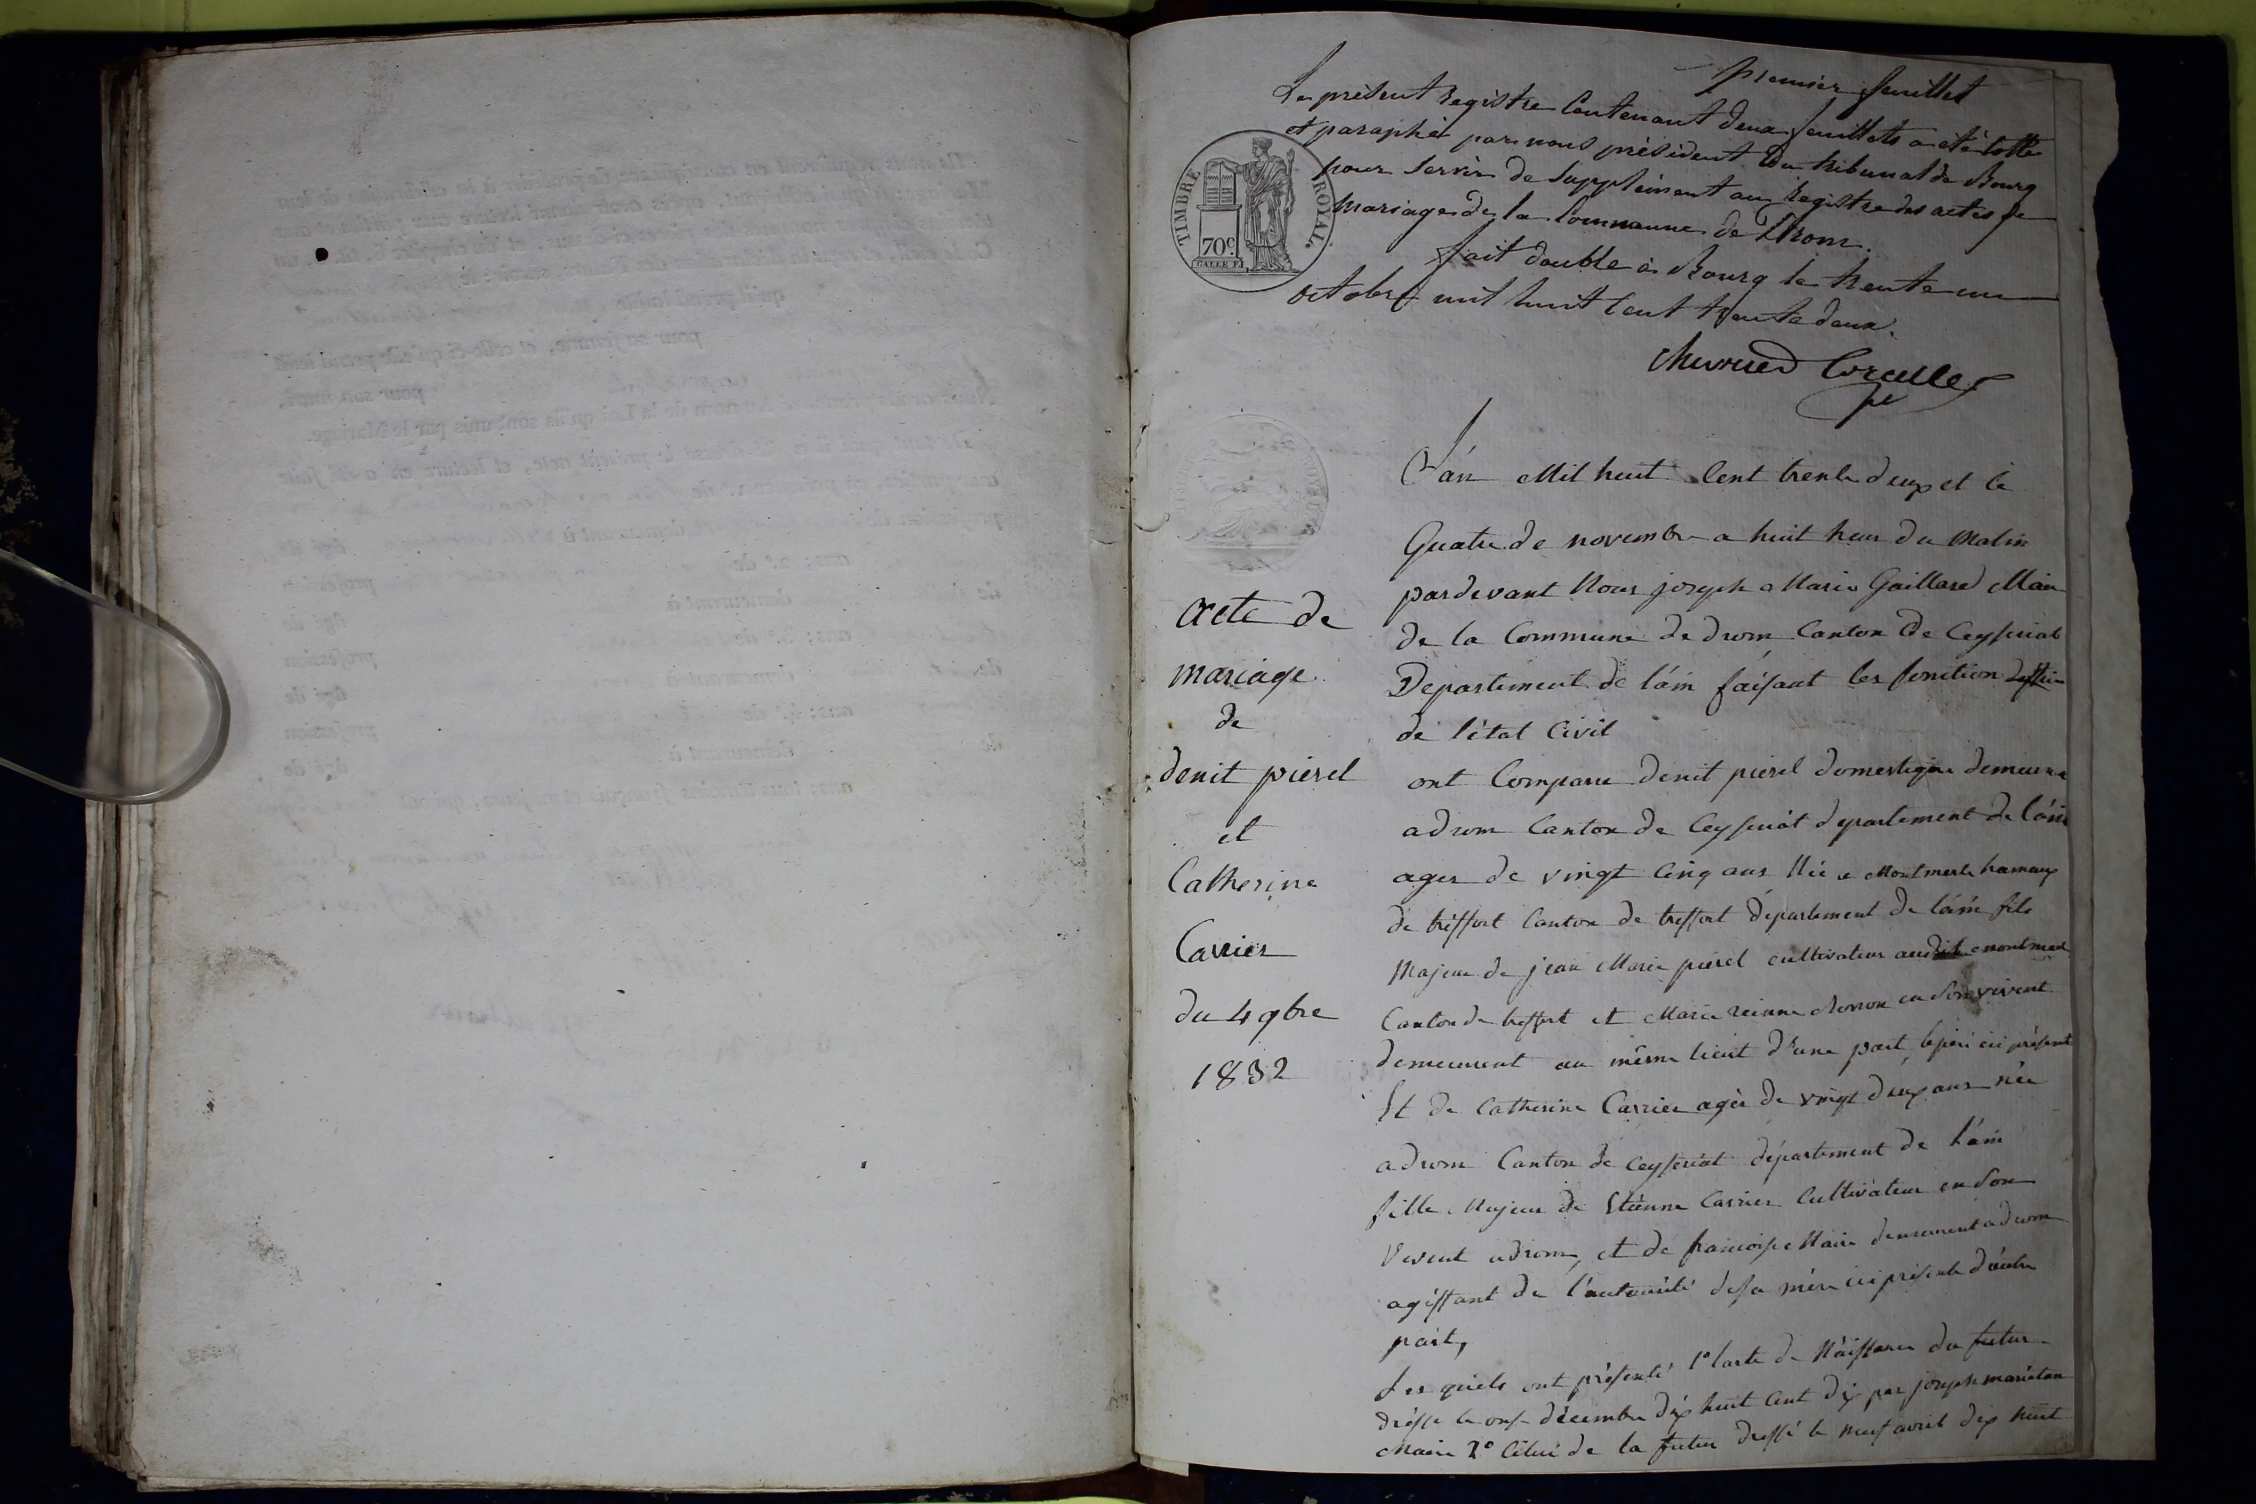 premier feuillet
Le présent Registre Contenant deux feuillets a été cotté
et paraphé par nous président du tribunal de Bourg
pour servir de Supplément au Registre des actes de
Mariage de la Commune de Drom.
fait double à Bourg le trente un
octobre mil huit Cent trente deux.
TIMBRE ROYAL.
70c.
GALLE F.
L'an Mil huit Cent trente deux et le
Quatre de novembre a huit heur du Matin
pardevant Nous joseph Marie Gaillard Maire
de la Commune de drom Canton de Ceyseriat
Departement de l'ain faisant les fonction
de l'état Civil
ont Comparu denit pierel domestique demeurant
a drom Canton de Ceyseriat departement de l'ain
ager de vingt Cinq ans Née a Montmerle hameaux
de treffort Canton de treffort département de l'ain fils
Majeur de jean Marie pierel cultivateur audit montmerle
Canton de treffort et Marie reinne en son vivent
demeurent au même lieut d'une part, le père ici présent
Et de Catherine Carrier agée de vingt deux ans née
a drom Canton de Ceyseriat département de l'ain
fille Majeur de Etienne Carrier Cultivateur en Son
Vivent a drom, et de francoise Maire demeurent a drom
agissant de l'autorité de sa mère ici présente d'autre
part,
Les quels ont présenté 1° l'acte de Naissance du futur
dressé le onse décembre dix huit Cent dix par joseph marietan
Maire 2° Celui de la futur dressé le neuf avril dix huit
acte de
mariage
de
denit pierel
et
Catherine
Carrier
du 4 9bre
1832